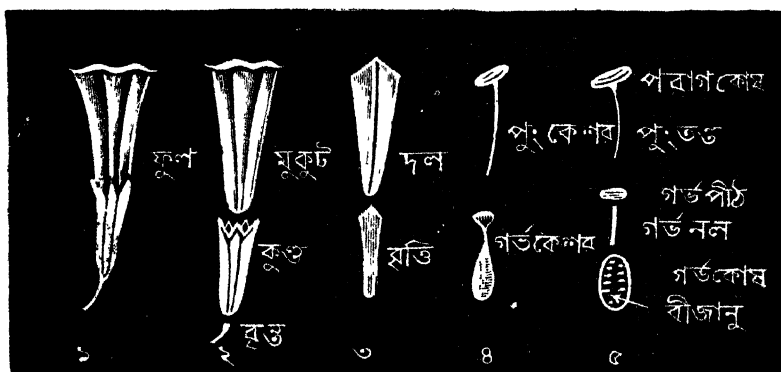 ফুল
মুকুট
কুণ্ড
বৃন্ত
দল
বৃতি
পুংকেশর
গর্ভকেশর
পরাগকোষ
পুংতন্তু
গর্ভপীঠ
গর্ভনল
গর্ভকোষ
বীজানু
১ ২ ৩ ৪ ৫